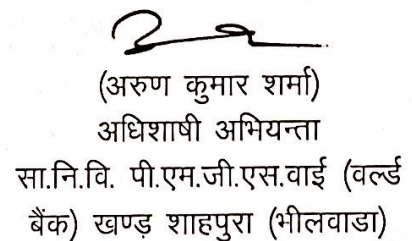 (अरुण कुमार शर्मा)
अधिशाषी अभियन्ता
सा.नि.वि. पी.एम.जी.एस.वाई (वर्ल्ड
बैंक) खण्ड़ शाहपुरा (भीलवाडा)